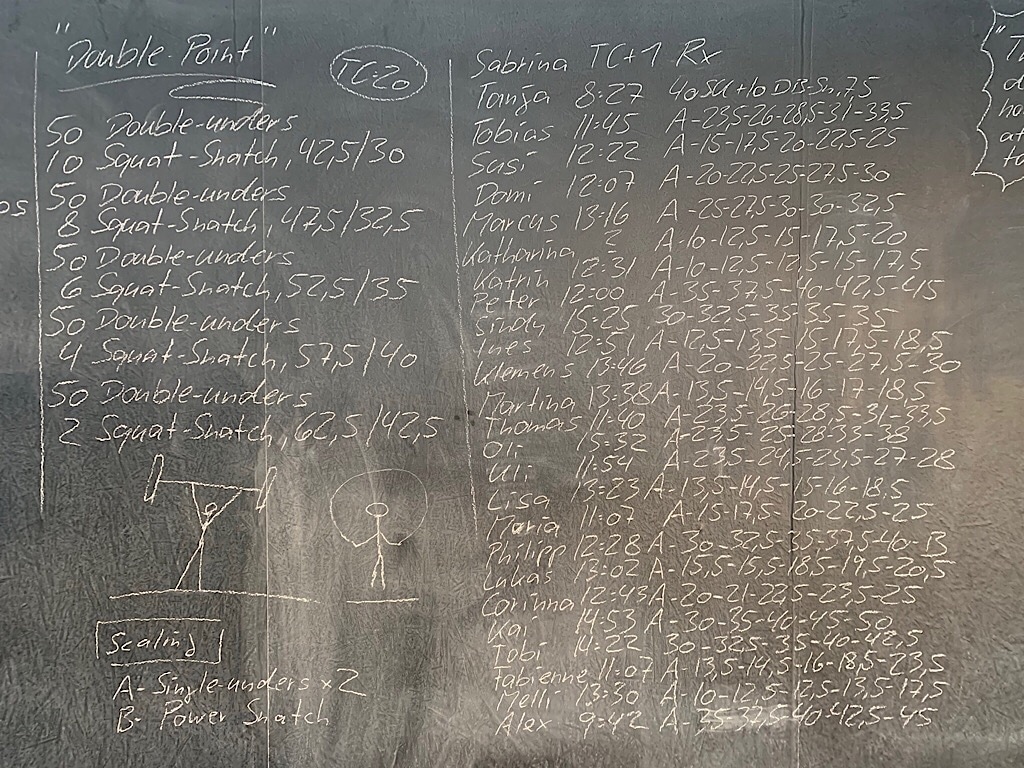 "Double-Point"
TC:20
50 Double-unders
10 Squat-Snatch, 42,5/30
50 Double-unders
8 Squat-Snatch, 47,5/32,5
50 Double-unders
6 Squat-Snatch, 52,5/35
50 Double-unders
4 Squat-Snatch, 57,5/40
50 Double-unders
2 Squat-Snatch, 62,5/42,5
Scaling
A- Single-unders x2
B- Power Snatch
os
Sabrina TC+1 Rx
Tanja 8:27 40SU+10 DB-Sn, 7,5
Tobias 11:45 A-23,5-26-28,5-31-33,5
Susi 12:22 A-15-17,5-20-22,5-25
Domi 12:07 A-20-22,5-25-27,5-30
Marcus 13:16 A-25-27,5-30-30-32,5
Katharina ? A-10-12,5-15-17,5-20
Katrin 12:31 A-10-12,5-12,5-15-17,5
Peter 12:00 A-35-37,5-40-42,5-45
Sindy 15:25 30-32,5-35-35-35
Ines 12:51 A-12,5-13,5-15-17,5-18,5
Klemens 13:46 A-20-22,5-25-27,5-30
Martina 13:38 A-13,5-14,5-16-17-18,5
Thomas 11:40 A-23,5-26-28,5-31-33,5
Oli 15:32 A-23,5-25-28-33-38
Uli 11:54 A-23,5-24,5-25,5-27-28
Lisa 13:23 A-13,5-14,5-15-16-18,5
Maria 11:07 A-15-17,5-20-22,5-25
Philipp 12:28 A-30-32,5-35-37,5-40-B
Lukas 13:02 A-15,5-15,5-18,5-19,5-20,5
Corinna 12:43 A-20-21-22,5-23,5-25
Kai 14:53 A-30-35-40-45-50
Tobi 14:22 30-32,5-35-40-42,5
Fabienne 11:07 A-13,5-14,5-16-18,5-23,5
Melli 13:30 A-10-12,5-12,5-13,5-17,5
Alex 9:42 A-35-37,5-40-42,5-45